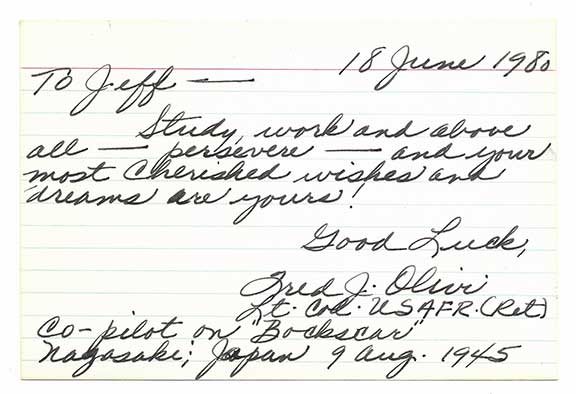 18 June 1980
To Jeff —
Study, work and above
all — persevere — and your
most cherished wishes and
dreams are yours!
Good Luck,
Fred J. Olivi
Lt. Col. USAFR. (Ret)
Co-pilot on "Bockscar"
Nagasaki, Japan 9 Aug. 1945